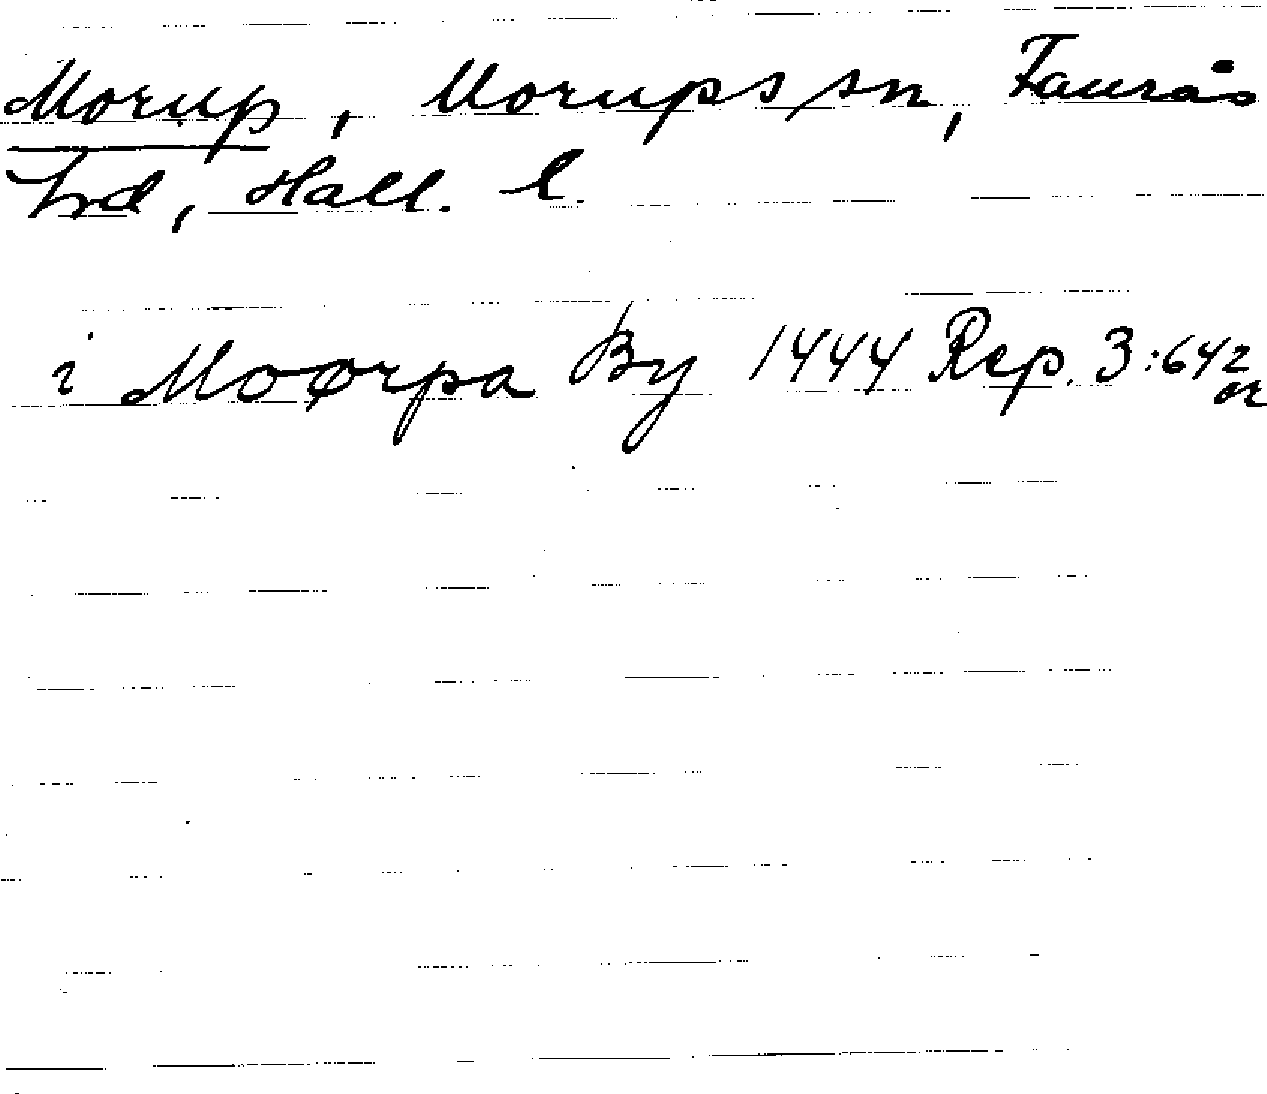 Morup, Morups sn, Faurås
hd, Hall. l.
i Moørpa By 1444 Rep. 3:642
or